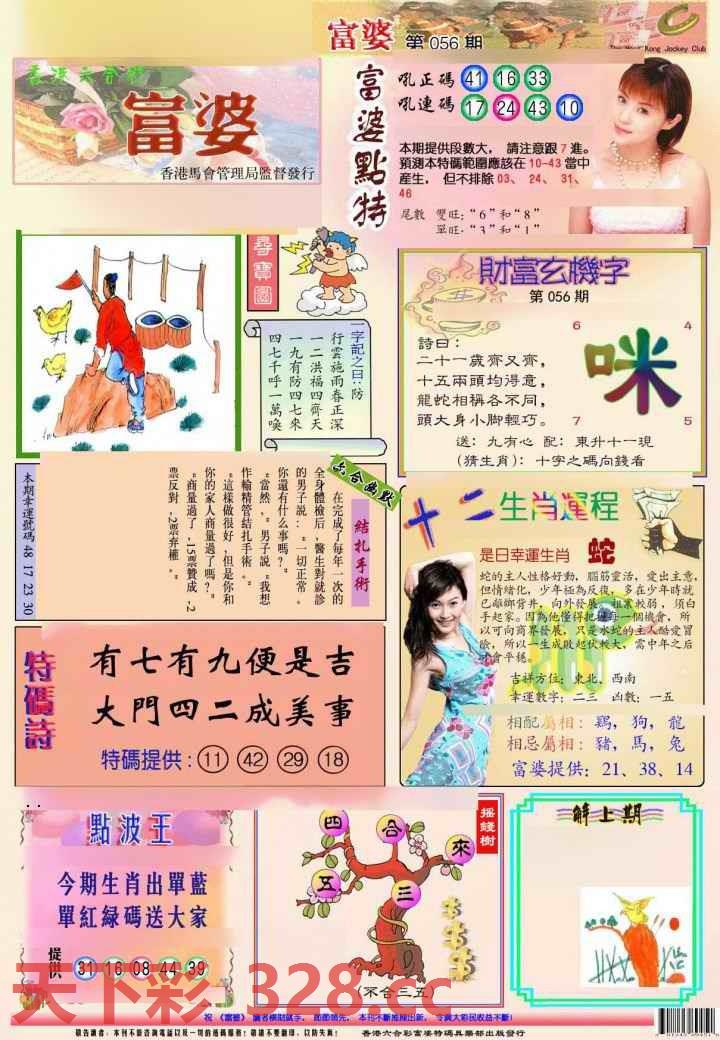 富婆 第056期
The Hong Kong Jockey Club
富婆
香港馬會管理局監督發行
富婆點特
吼正碼 41 16 33
吼連碼 17 24 43 10
本期提供段數大， 請注意跟 7 進。
預測本特碼範圍應該在 10-43 當中
產生， 但不排除 03、 24、 31、
46
尾數 雙旺:“6”和“8”
單旺:“3”和“1”
尋寶圖
一字記之曰:防
行雲施雨春正深
一二洪福四齊天
一九有防四七來
四七千呼一萬喚
財富玄機字
第 056 期
詩曰：
二十一歲齊又齊，
十五兩頭均得意，
龍蛇相稱各不同，
頭大身小脚輕巧。
6 4
咪
7 5
送：九有心 配：東升十一現
(猜生肖)：十字之碼向錢看
本期幸運號碼 48 17 23 30
六合幽默
結扎手術
在完成了每年一次的
全身體檢后,醫生對就診
的男子説：“一切正常。
你還有什么事嗎?”
“當然，”男子説，“我想
作輸精管結扎手術。”
“這樣做很好,但是你和
你的家人商量過了嗎?”
“商量過了,15票贊成,2
票反對,2票弃權。”
十二生肖運程
是日幸運生肖 蛇
蛇的主人性格好動，腦筋靈活，愛出主意，
但情緒化，少年極為反復，多在少年時就
手起家。因為他懂得把握每一個機會，所
以可向商界發展，只是水蛇的主人酷愛冒
險，所以一生成敗起伏較大，當中年之后
才會平穩。
吉祥方位：東北、西南
幸運數字：二三 凶數：一五
相配屬相：鷄，狗，龍
相忌屬相：豬，馬，兔
富婆提供：21、38、14
特碼詩
有七有九便是吉
大門四二成美事
特碼提供：11 42 29 18
點波王
今期生肖出單藍
單紅緑碼送大家
提供 31 16 08 44 39
搖錢樹
四 合 來
五 三
(不合三五)
解上期
天下彩 328.cc
祝《富婆》讀者橫財就手，節節領先，本刊不斷推陳出新，令廣大彩民收益不斷!
敬告讀者：本刊不設咨詢電話以及一切的透碼服務！敬請不要翻印，以防失真！ 香港六合彩富婆特碼俱樂部出版發行